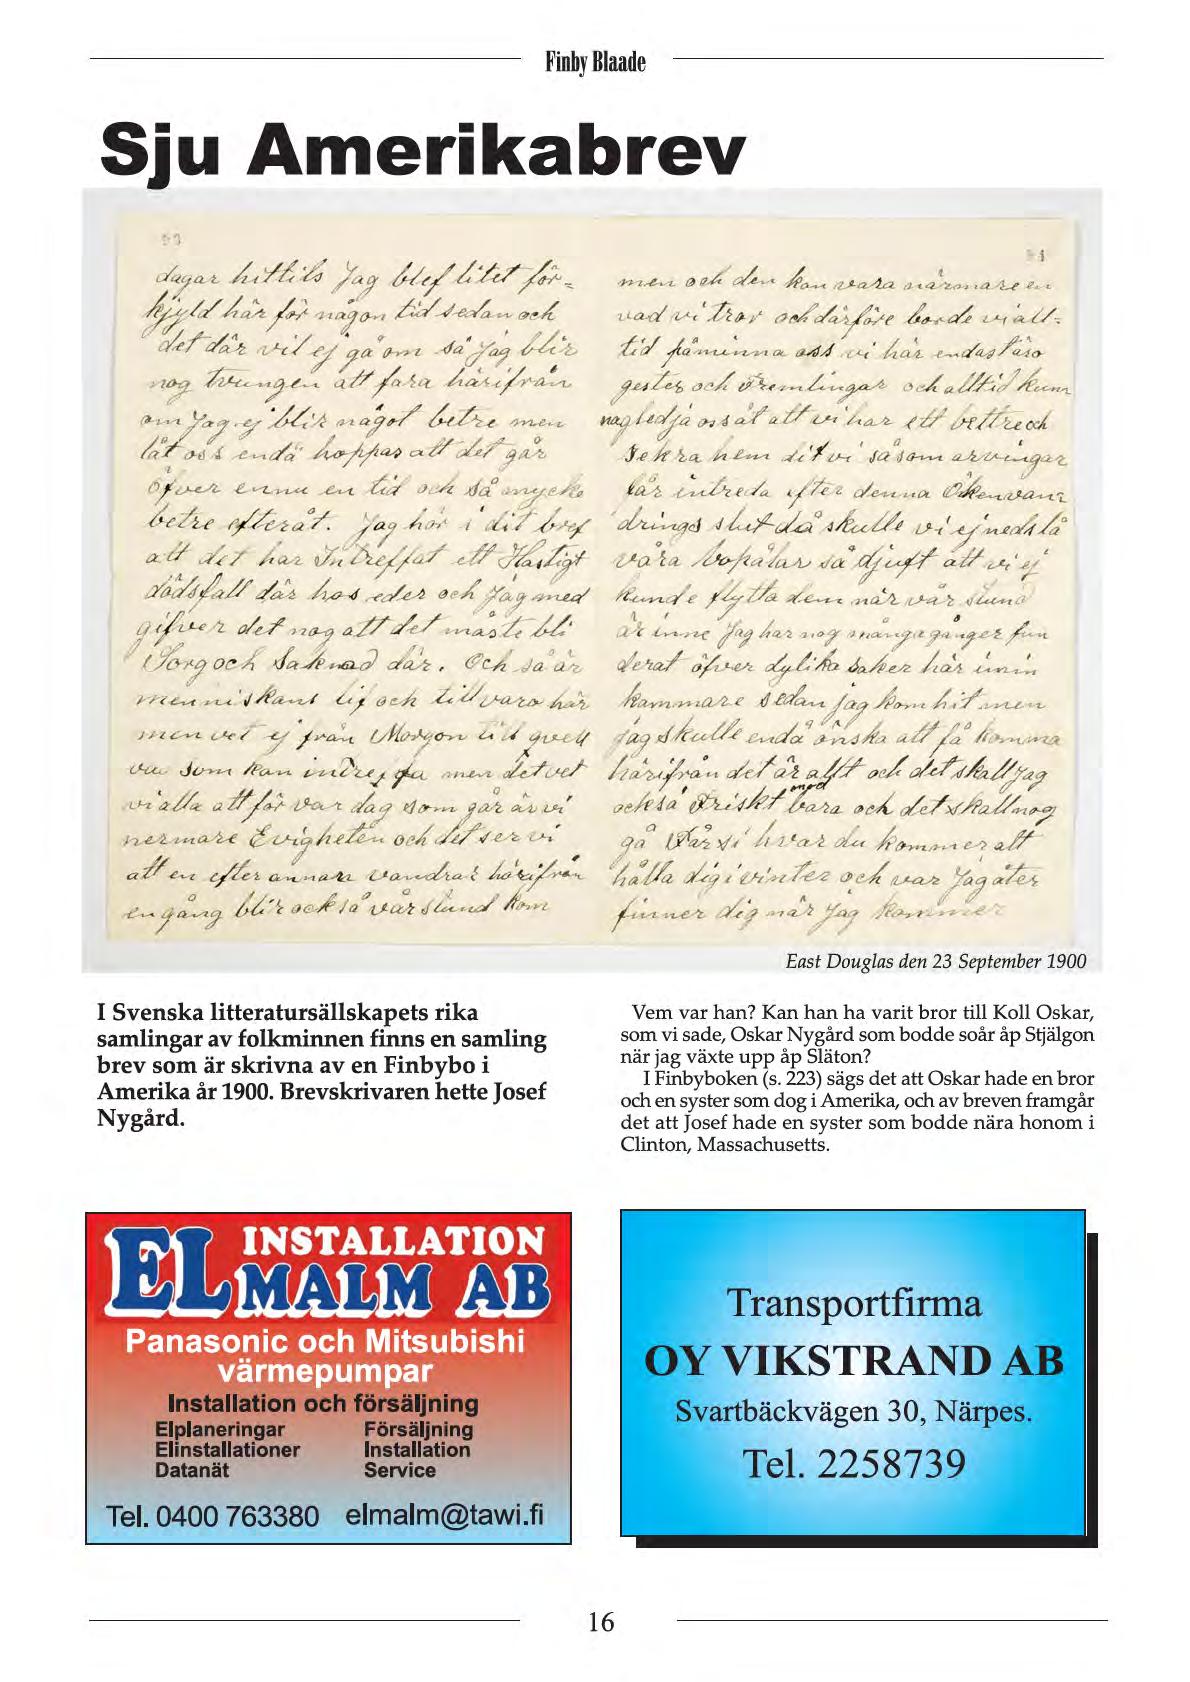 Finby Blaade
Sju Amerikabrev
53
dagar hittils Jag blef litet för=
kjyld här för någon tid sedan och
det där vil ej gå om så Jag blir
nog tvungen att fara härifrån
om Jag ej blir något betre men
låt oss endå hoppas att det går
öfver ennu en tid och så mycke
betre efteråt. Jag hör i dit bref
att det har Intreffat ett Hastigt
dödsfall där hos eder och Jag med
gifver det nog att det måste bli
Sorg och Saknad där. Och så är
menniskans lif och tillvaro här
men vet ej från Morgon till qvell
va som kan intreffa men det vet
vi alla att för var dag som går är vi
nermare Evigheten och det ser vi
att en efter annan vandrar härifrån
en gång blir också vår stund kom
54
men och den kan vara närmare en
vad vi tror och därföre borde vi all=
tid påminna oss vi här endast äro
gester och Fremlingar och alltid kunna
nog gledja oss åt att vi har ett bettre och
Sekra hem dit vi såsom arvingar
får intreda efter denna Ökenvan=
drings slut då skulle vi ej nedslå
våra bopålar så djuft att vi ej
kunde flytta dem när vår stund
är inne Jag har nog många gånger fun
derat öfver dylika saker här i min
kammare sedan jag kom hit men
jag skulle endå önska att få komma
härifrån det är allt och det skall Jag
också Friskt med bara och det skall nog
gå Får si hvar du kommer att
hålla dig i vinter och var Jag åter
finner dig när Jag kommer
East Douglas den 23 September 1900
I Svenska litteratursällskapets rika
samlingar av folkminnen finns en samling
brev som är skrivna av en Finbybo i
Amerika år 1900. Brevskrivaren hette Josef
Nygård.
Vem var han? Kan han ha varit bror till Koll Oskar,
som vi sade, Oskar Nygård som bodde soår åp Stjälgon
när jag växte upp åp Släton?
I Finbyboken (s. 223) sägs det att Oskar hade en bror
och en syster som dog i Amerika, och av breven framgår
det att Josef hade en syster som bodde nära honom i
Clinton, Massachusetts.
EL INSTALLATION
MALM AB
Panasonic och Mitsubishi
värmepumpar
Installation och försäljning
Elplaneringar Försäljning
Elinstallationer Installation
Datanät Service
Tel. 0400 763380 elmalm@tawi.fi
Transportfirma
OY VIKSTRAND AB
Svartbäckvägen 30, Närpes.
Tel. 2258739
16